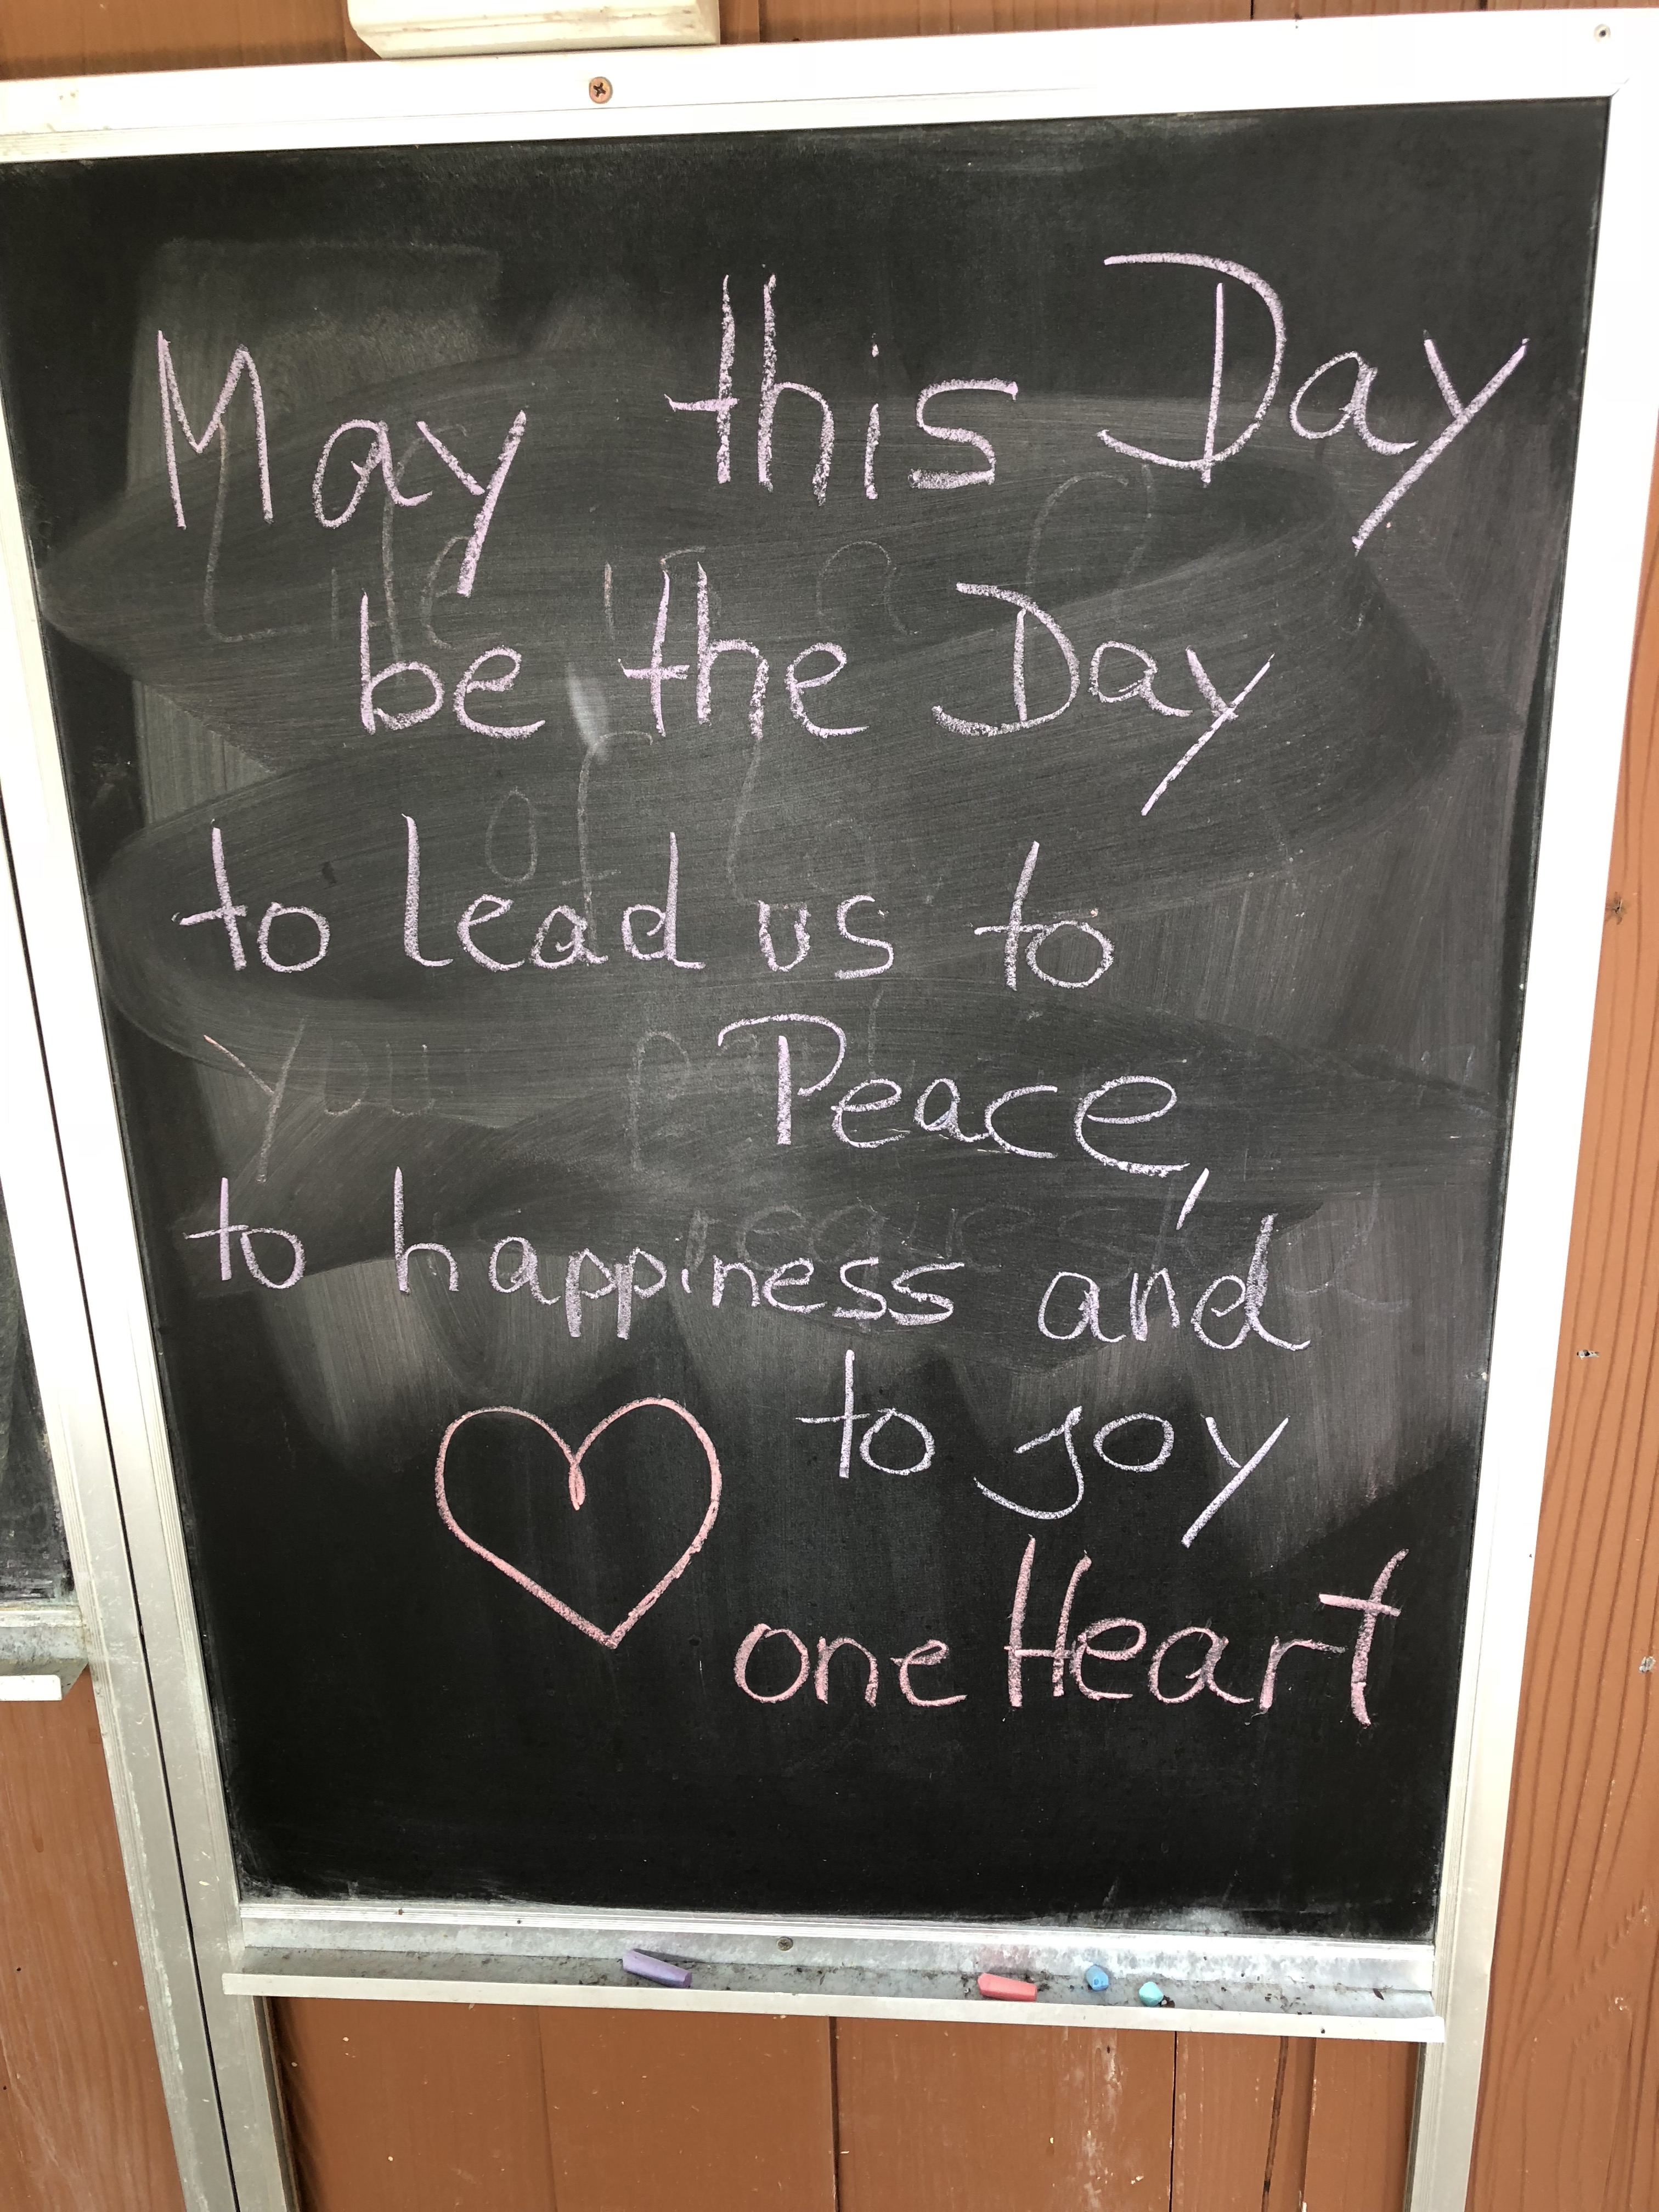 May this Day
be the Day
to lead us to
Peace,
to happiness and
to joy
one Heart